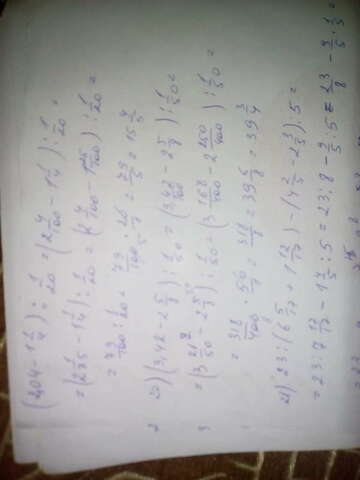 (2,04 - 1 1/4) : 1/20 = (2 4/100 - 1 1/4) : 1/20 =
= (2 1/25 - 1 1/4) : 1/20 = (2 4/100 - 1 25/100) : 1/20 =
= 79/100 : 1/20 = 79/100 · 20 = 79/5 = 15 4/5
20) (3,42 - 2 5/8) : 1/50 = (3 42/100 - 2 5/8) : 1/50 =
= (3 21/50 - 2 5/8) : 1/50 = (3 168/400 - 2 250/400) : 1/50 =
= 318/400 · 50/1 = 318/8 = 39 6/8 = 39 3/4
21) 23 : (6 5/17 + 1 12/17) - (4 2/5 - 2 3/5) : 5 =
= 23 : 7 17/17 - 1 4/5 : 5 = 23 : 8 - 9/5 : 5 = 23/8 - 9/5 · 1/5 =